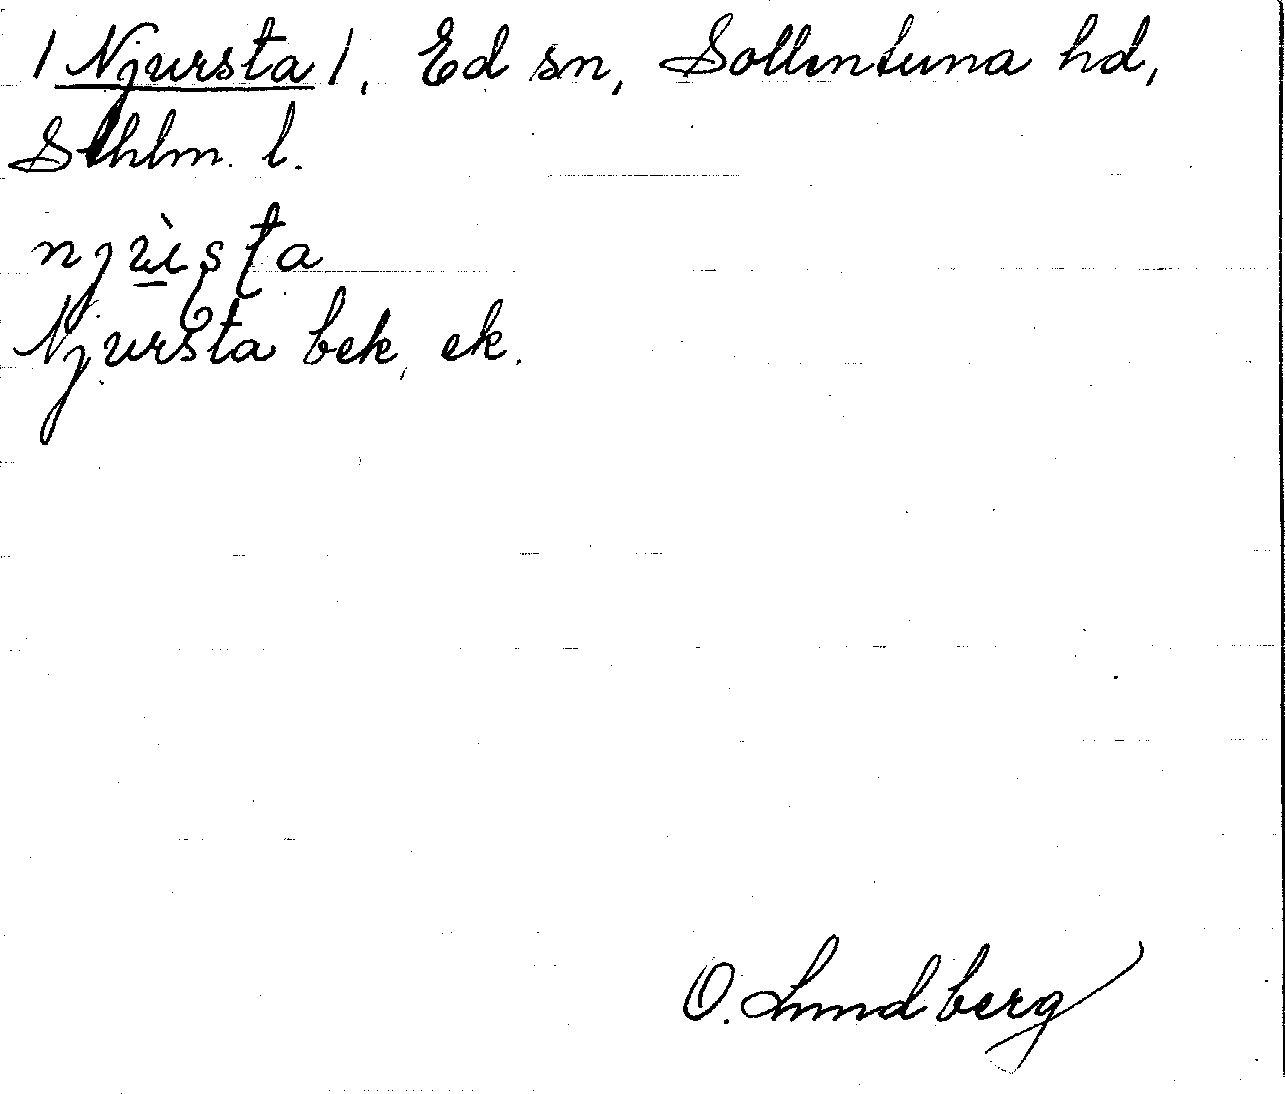 /Njursta/, Ed sn, Sollentuna hd,
Sthlm. l.
Njursta bek, ek.
O. Lundberg